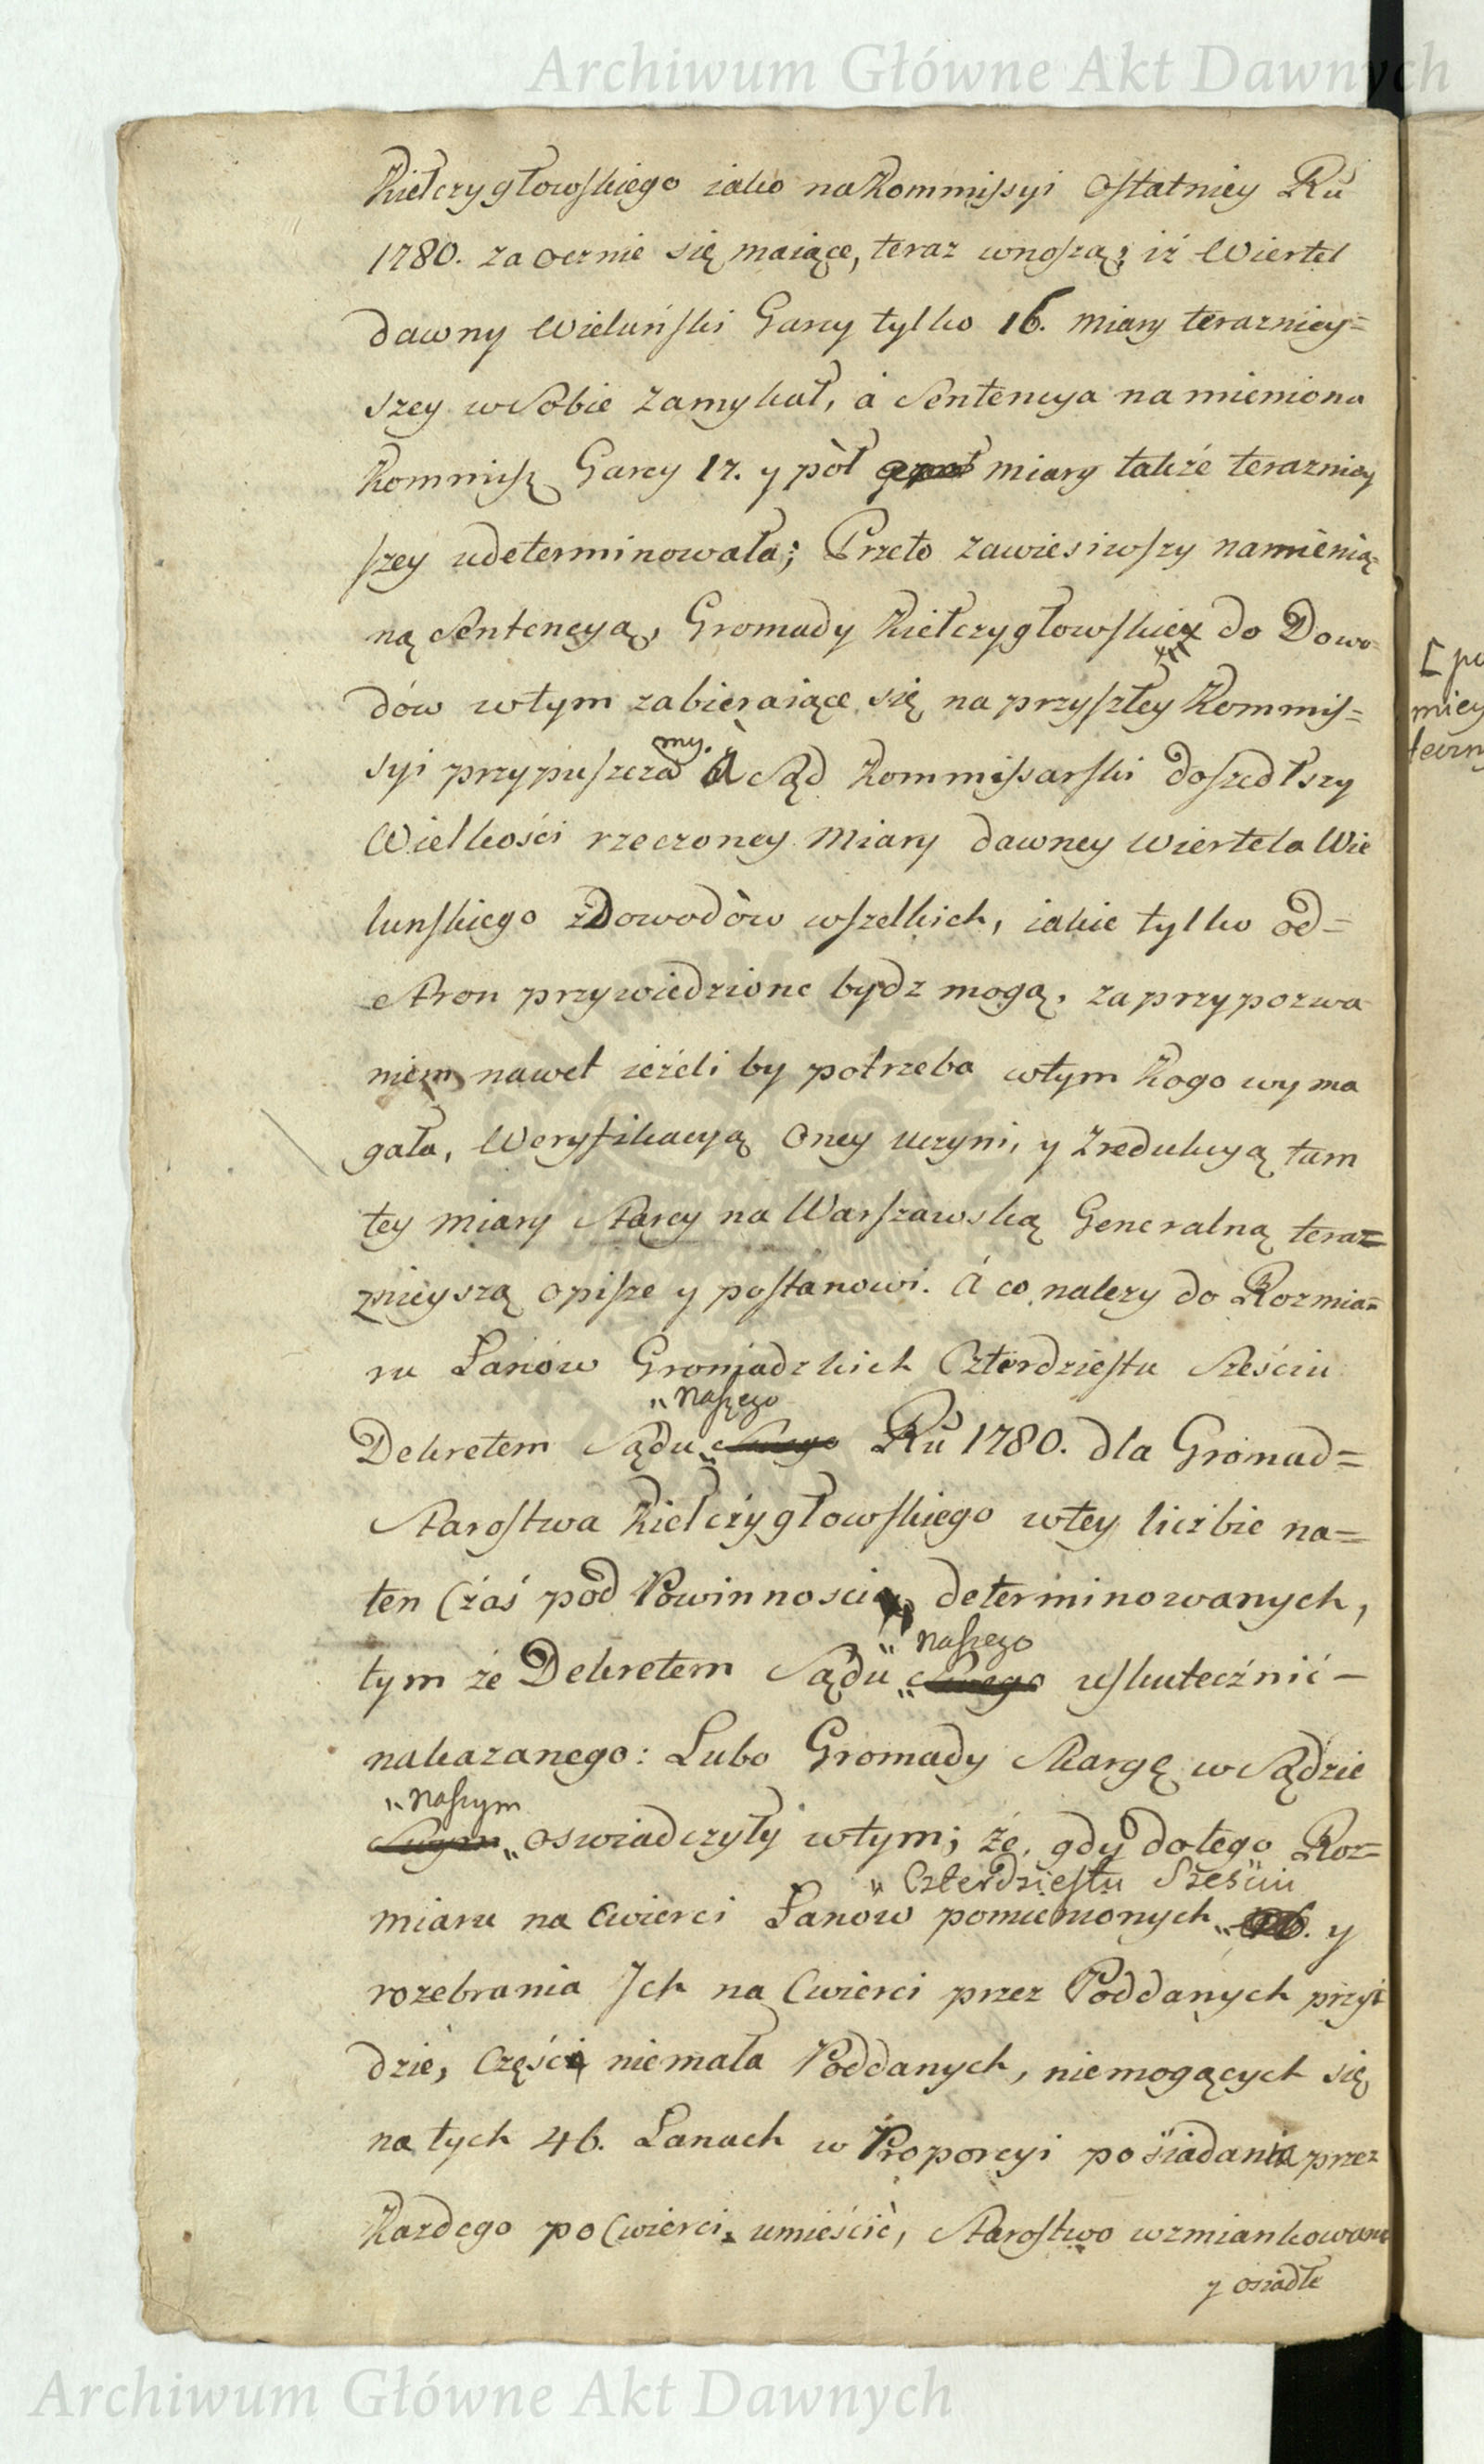 Archiwum Główne Akt Dawnych
Kiełczygłowskiego iako na Kommissyi Ostatniey Ru
1780. zaocznie się maiące, teraz wnoszą; iż Wiertel
dawny Wieluński Garcy tylko 16. miary terazniey=
szey w Sobie zamykał, á Sentencya namieniona
Kommiss: Garcy 17. y pòł miary także terazniey
szey udeterminowała; Przeto zawiesiwszy namienią
ną Sentencyą, Gromady Kiełczygłowskie do Dowo
dów w tym zabieraiące się na przyszłey Kommis=
syi przypuszcza my. A Sąd Kommissarski doszedłszy
Wielkości rzeczoney Miary dawney Wiertela Wie
lunskiego z Dowodòw wszelkich, iakie tylko od=
Stron przywiedzione bydz mogą, za przypozwa
niem nawet ieżeli by potrzeba w tym Kogo wyma
gała, Weryfikacyą Oney uczyni, y zredukcyą tam
tey Miary Starey na Warszawską Generalną teraz=
znieyszą opisze y postanowi. A co należy do Rozmia=
ru Łanów Gromadzkich Czterdziestu Sześciu
„ Naszego
Dekretem Sądu „ Swego Ru 1780. dla Gromad=
Starostwa Kiełczygłowskiego w tey liczbie na=
ten Czas pod Powinnoscią determinowanych,
„ Naszego
tym że Dekretem Sądu „ Swego uskutecznić –
nakazanego: Lubo Gromady Skargę w Sądzie
„ Naszym
Swym „ oswiadczyły w tym; że, gdy do tego Roz=
„ Czterdziestu Sześciu
miaru na Cwierci Łanow pomienionych „ 46. y
rozebrania Jch na Cwierci przez Poddanych przyi
dzie, Część niemała Poddanych, niemogących się
na tych 46. Łanach w Proporcyi posiadania przez
Każdego po Cwierci umieścić, Starostwo wzmiankowane
y osiadłe
[ po
miey
Archiwum Główne Akt Dawnych